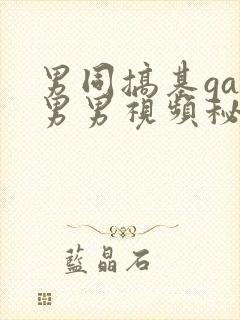 男同搞基ga
男男視頻秘
藍晶石